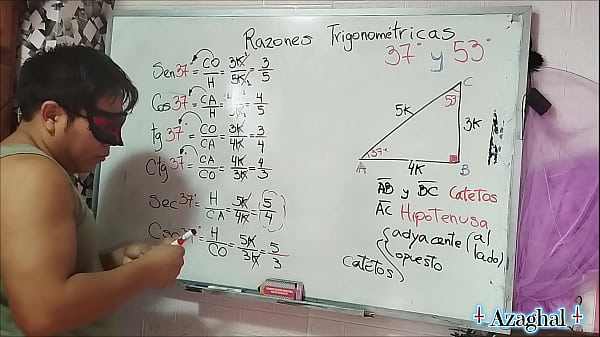 Razones Trigonométricas
37° y 53°
Sen37° = CO/H = 3K/5K = 3/5
Cos 37° = CA/H = 4/5
tg 37° = CO/CA = 3K/4K = 3/4
Ctg 37° = CA/CO = 4K/3K = 4/3
Sec 37° = H/CA = 5K/4K = 5/4
= H/CO = 5K/3K = 5/3
C
53°
5K
3K
37°
A
4K
B
AB y BC Catetos
AC Hipotenusa
Catetos
adyacente (al lado)
opuesto
Azaghal